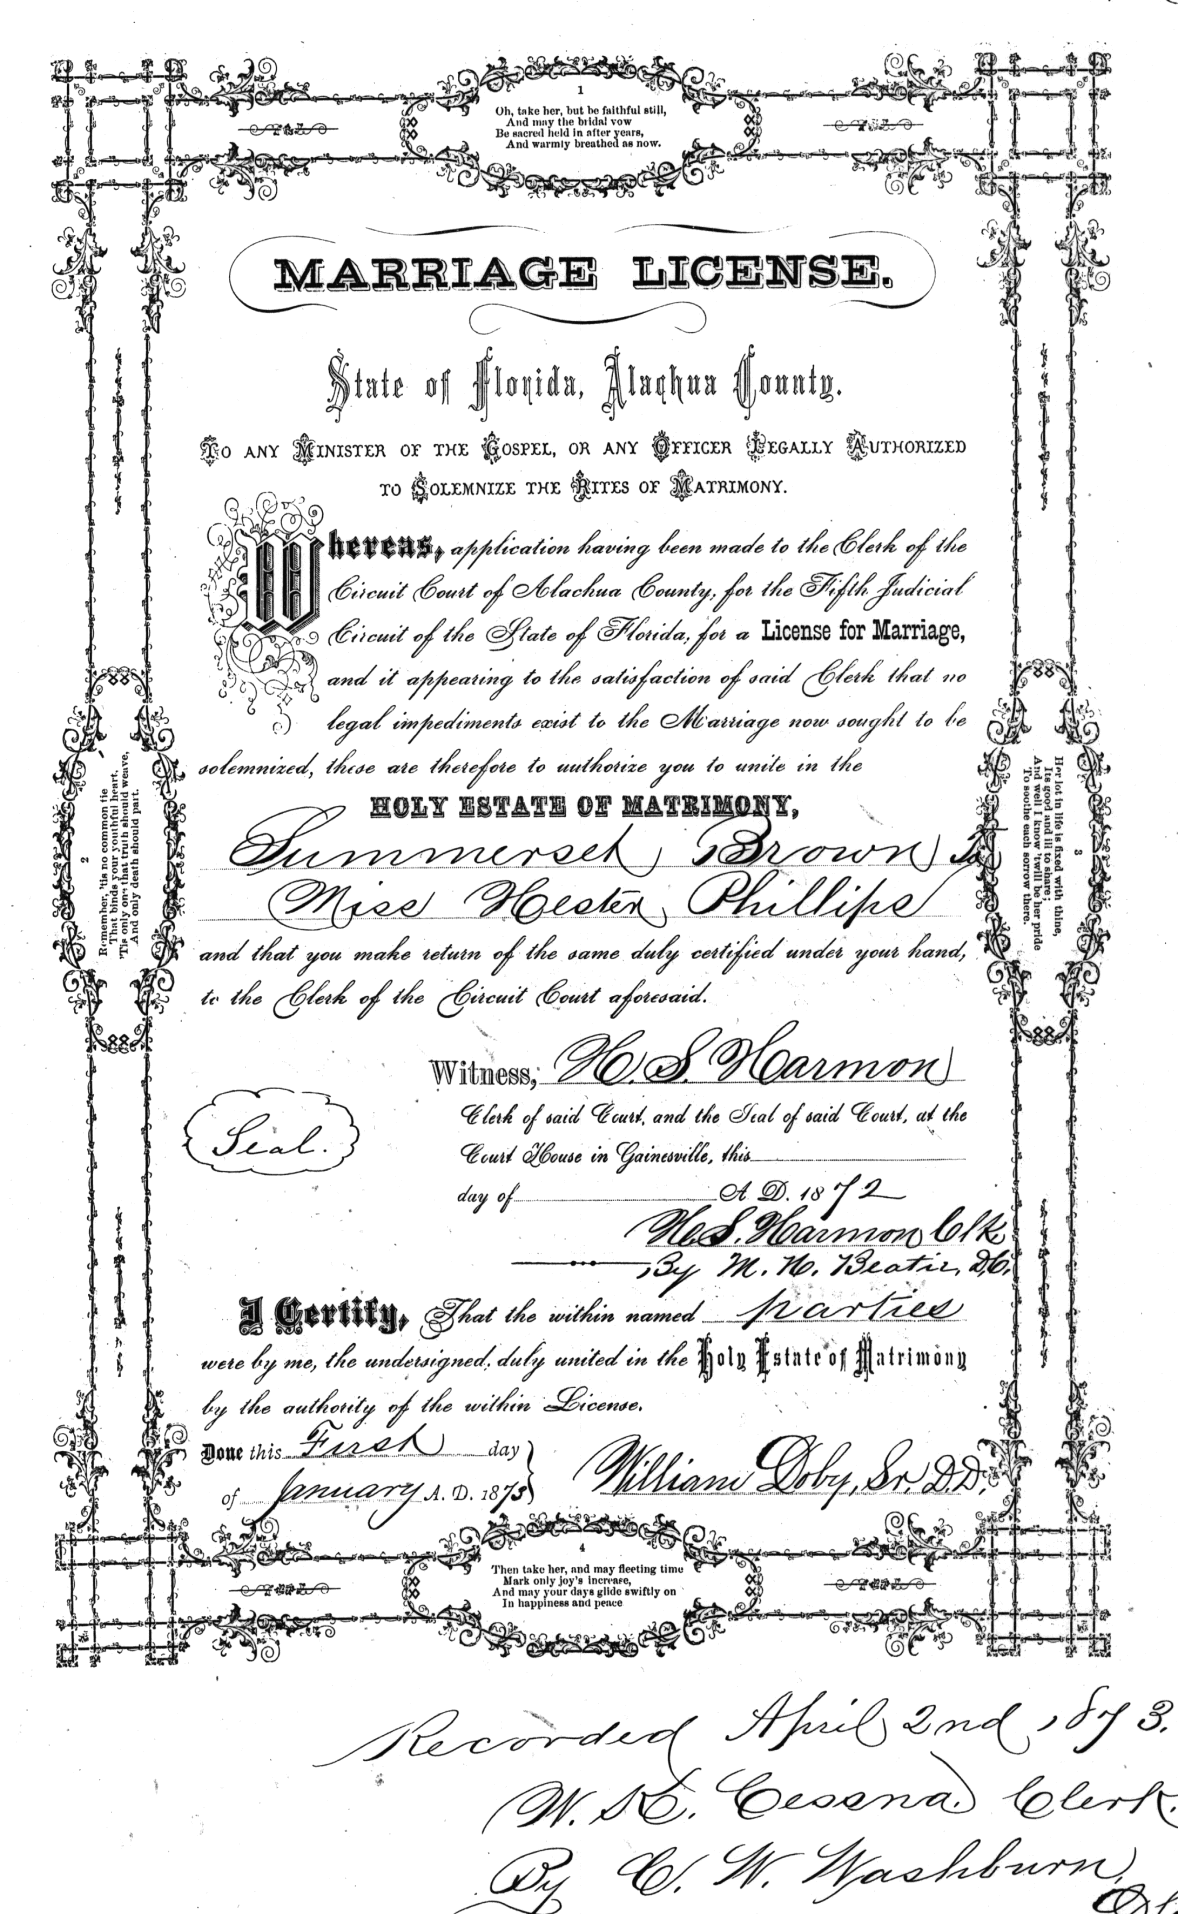 1
Oh, take her, but be faithful still,
And may the bridal vow
Be sacred held in after years,
And warmly breathed as now.
MARRIAGE LICENSE.
State of Florida, Alachua County.
TO ANY MINISTER OF THE GOSPEL, OR ANY OFFICER LEGALLY AUTHORIZED
TO SOLEMNIZE THE RITES OF MATRIMONY.
Whereas, application having been made to the Clerk of the
Circuit Court of Alachua County, for the Fifth Judicial
Circuit of the State of Florida, for a License for Marriage,
and it appearing to the satisfaction of said Clerk that no
legal impediments exist to the Marriage now sought to be
solemnized, these are therefore to authorize you to unite in the
HOLY ESTATE OF MATRIMONY,
Summerset Brown To
Miss Hester Phillips
and that you make return of the same duly certified under your hand,
to the Clerk of the Circuit Court aforesaid.
2
Remember, 'tis no common tie
That binds your youthful heart,
'Tis only one that truth should weave,
And only death should part.
3
Her lot in life is fixed with thine,
Its good and ill to share;
And well I know 'twill be her pride
To soothe each sorrow there.
Witness, H. S. Harmon
Clerk of said Court, and the Seal of said Court, at the
Seal.
Court House in Gainesville, this
day of A. D. 1872
H. S. Harmon Clk
By M. H. Beatie, D.C.
I Certify, That the within named parties
were by me, the undersigned, duly united in the Holy Estate of Matrimony
by the authority of the within License.
Done this First day
of January A. D. 1873
William Doby, Sr. D.D.
4
Then take her, and may fleeting time
Mark only joy's increase,
And may your days glide swiftly on
In happiness and peace
Recorded April 2nd, 1873.
W. K. Cessna Clerk.
By C. W. Washburn,